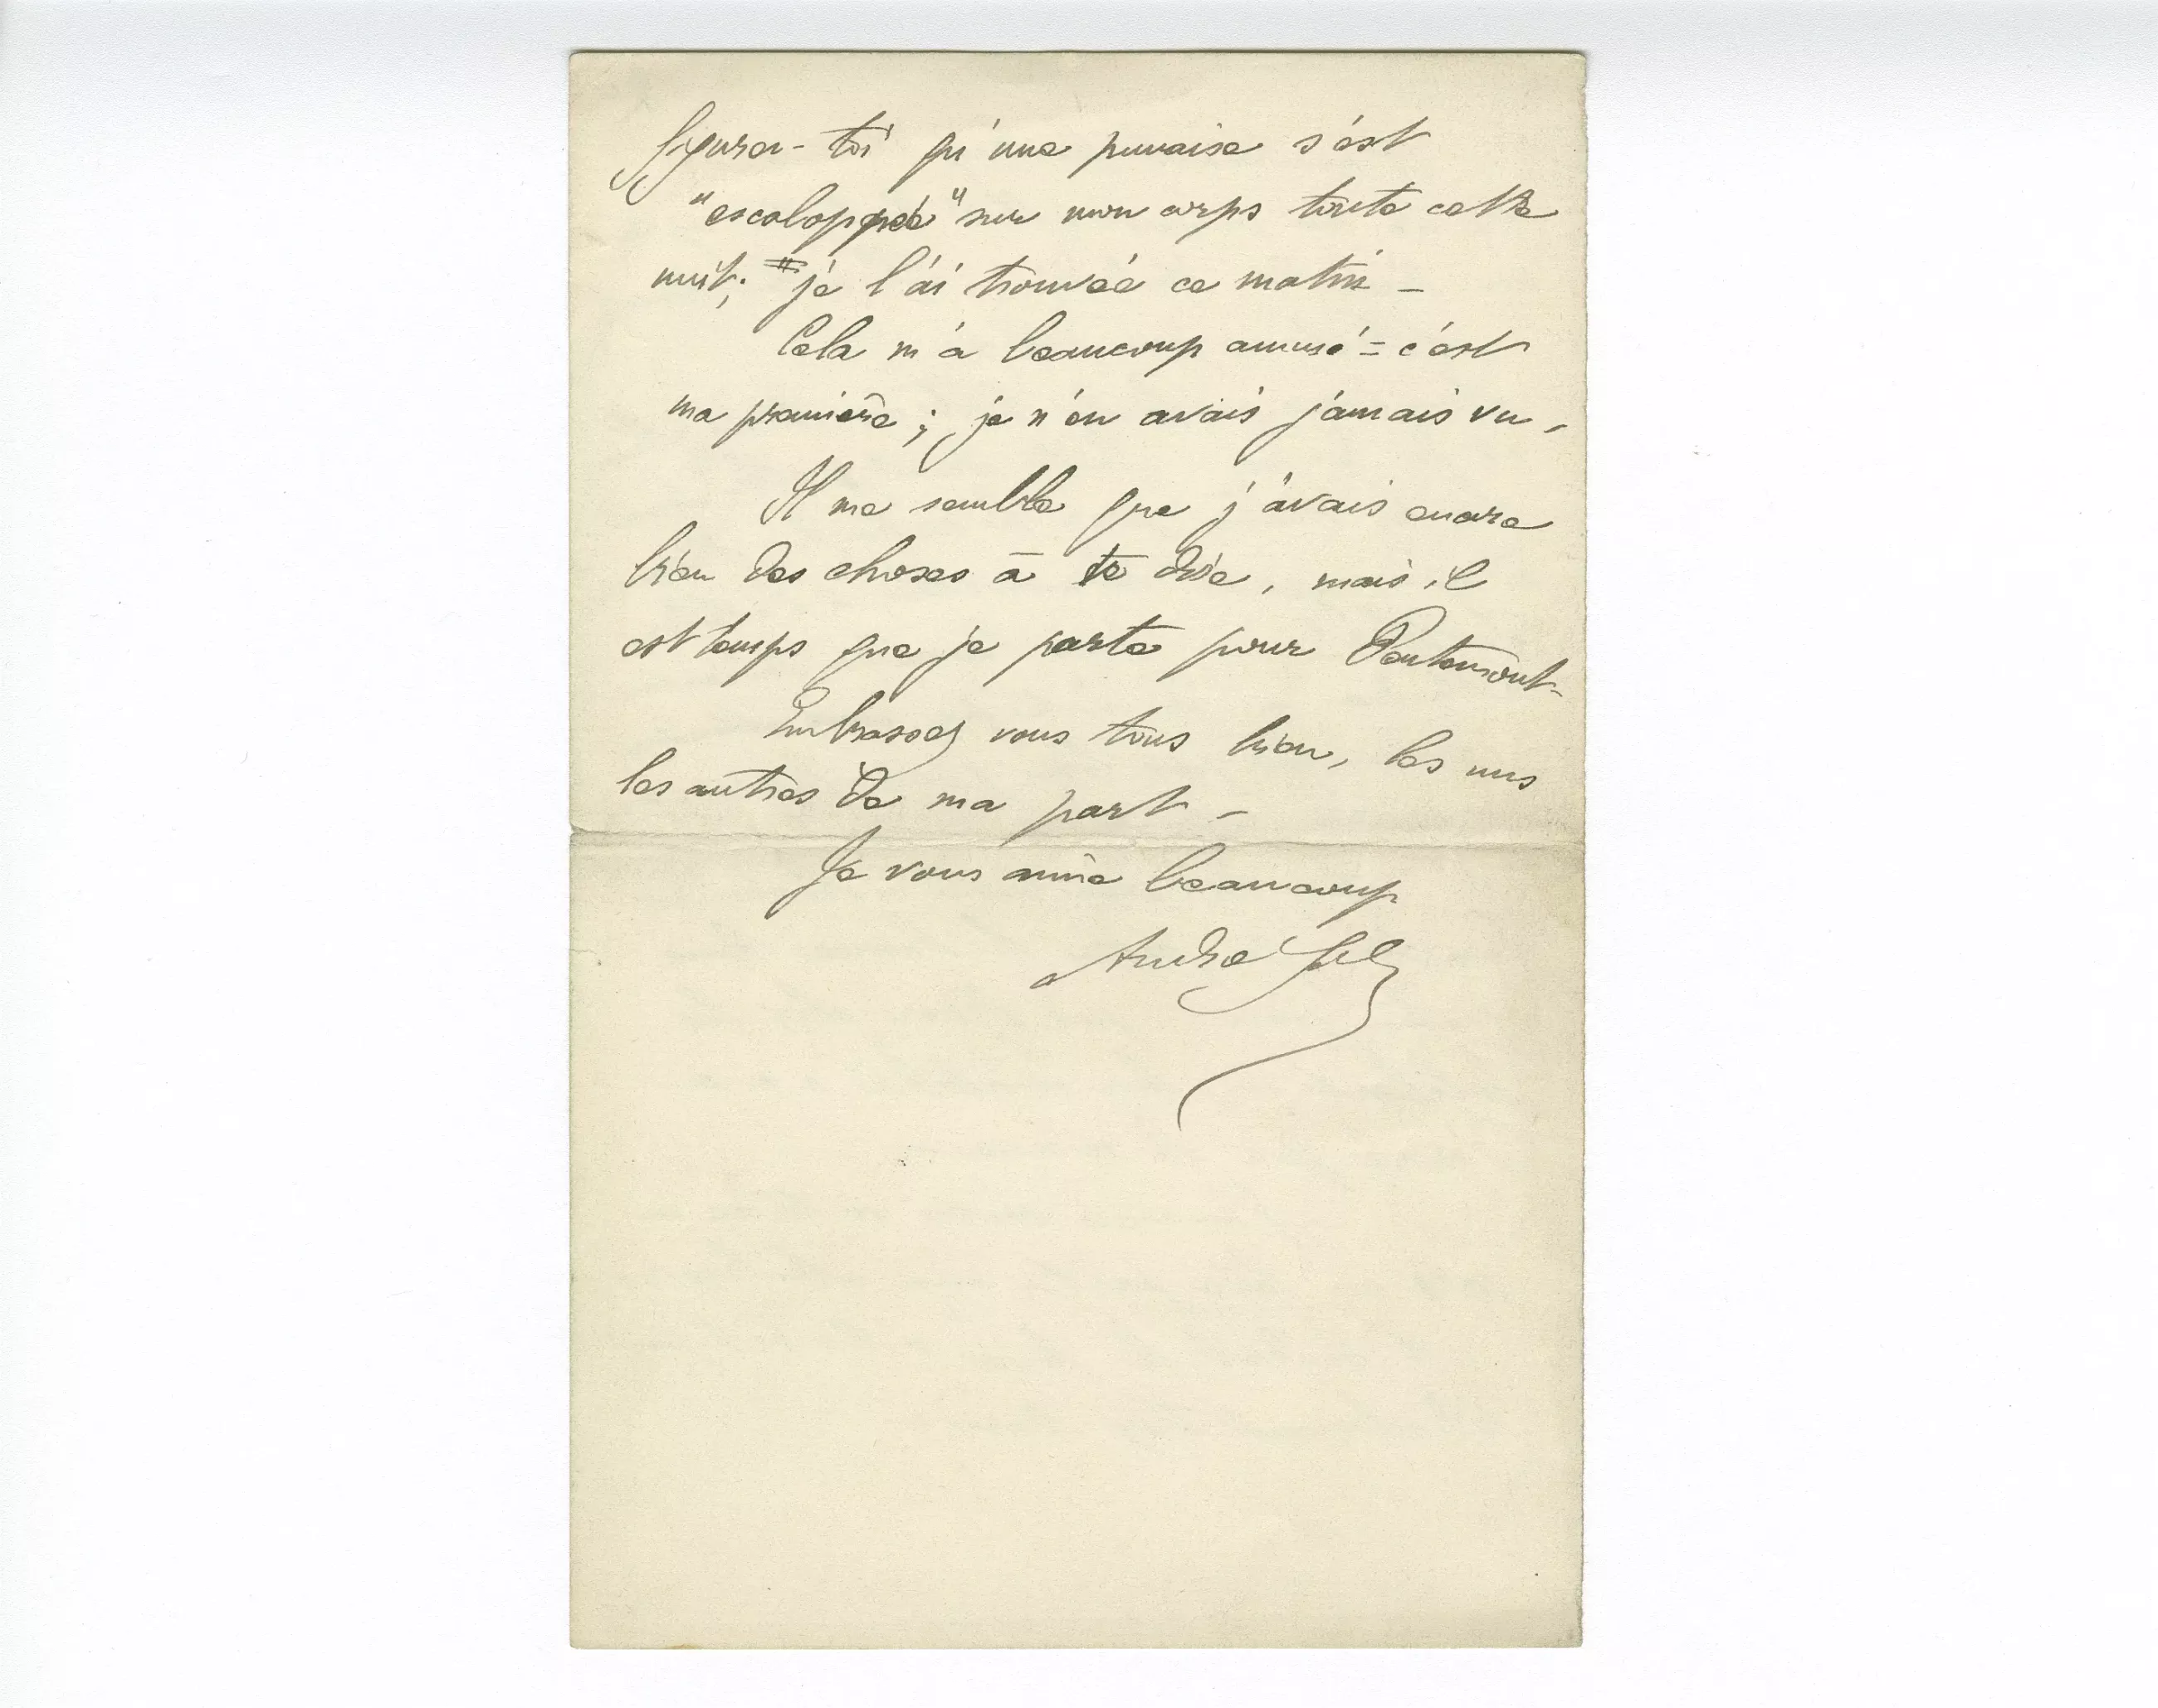 figure-toi qu'une punaise s'est
"escaloppée" sur mon corps toute cette
nuit; je l'ai trouvée ce matin -
Cela m'a beaucoup amusé = c'est
ma première ; je n'en avais jamais vu -
Il me semble que j'avais encore
bien des choses à te dire, mais il
est temps que je parte pour Pentemont -
Embrassez vous tous bien, les uns
les autres de ma part -
Je vous aime beaucoup
André